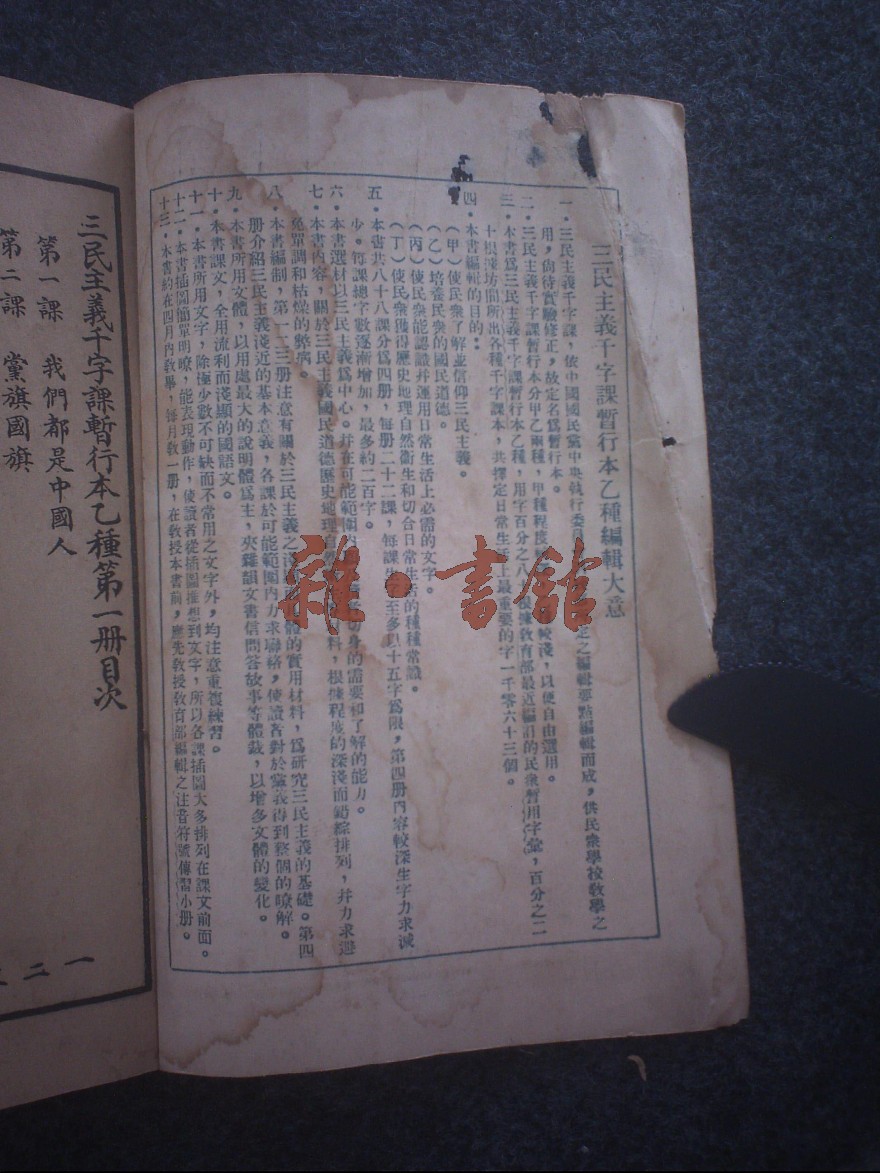 三民主義千字課暫行本乙種編輯大意
一．三民主義千字課，依中國國民黨中央執行委定之編輯要點編輯而成，供民衆學校教學之
用，尚待實驗修正，故定名爲暫行本。
二．三民主義千字課暫行本分甲乙兩種，甲種程度較淺，以便自由選用。
三．本書爲三民主義千字課暫行本乙種，用字百分之八根據教育部最近編訂的民衆暫用字彙，百分之二
十根據坊間所出各種千字課本，共擇定日常生活上最重要的字一千零六十三個。
四．本書編輯的目的：
（甲）使民衆了解並信仰三民主義。
（乙）培養民衆的國民道德。
（丙）使民衆能認識并運用日常生活上必需的文字。
（丁）使民衆獲得歷史地理自然衞生和切合日常生活的種種常識。
五．本書共八十八課分爲四册，每册二十二課，每課生字至多以十五字爲限，第四册內容較深生字力求減
少。每課總字數逐漸增加，最多約二百字。
六．本書選材以三民主義爲中心。并在可能範圍內身的需要和了解的能力。
七．本書內容，關於三民主義國民道德歷史地理自然料，根據程度的深淺而錯綜排列，并力求避
免單調和枯燥的弊病。
八．本書編制，第一二三册注意有關於三民主義之體的實用材料，爲研究三民主義的基礎。第四
册介紹三民主義淺近的基本意義，各課於可能範圍內力求聯絡，使讀者對於黨義得到整個的暸解。
九．本書所用文體，以用處最大的說明體爲主，夾雜韻文書信問答故事等體裁，以增多文體的變化。
十．本書課文，全用流利而淺顯的國語文。
十一．本書所用文字，除極少數不可缺而不常用之文字外，均注意重複練習。
十二．本書插圖簡單明暸，能表現動作，使讀者從插圖推想到文字，所以各課插圖大多排列在課文前面。
十三．本書約在四月內教畢，每月教一册，在教授本書前，應先教授教育部編輯之注音符號傳習小册。
三民主義千字課暫行本乙種第一册目次
第一課 我們都是中國人 一
第二課 黨旗國旗 二
雜·書館